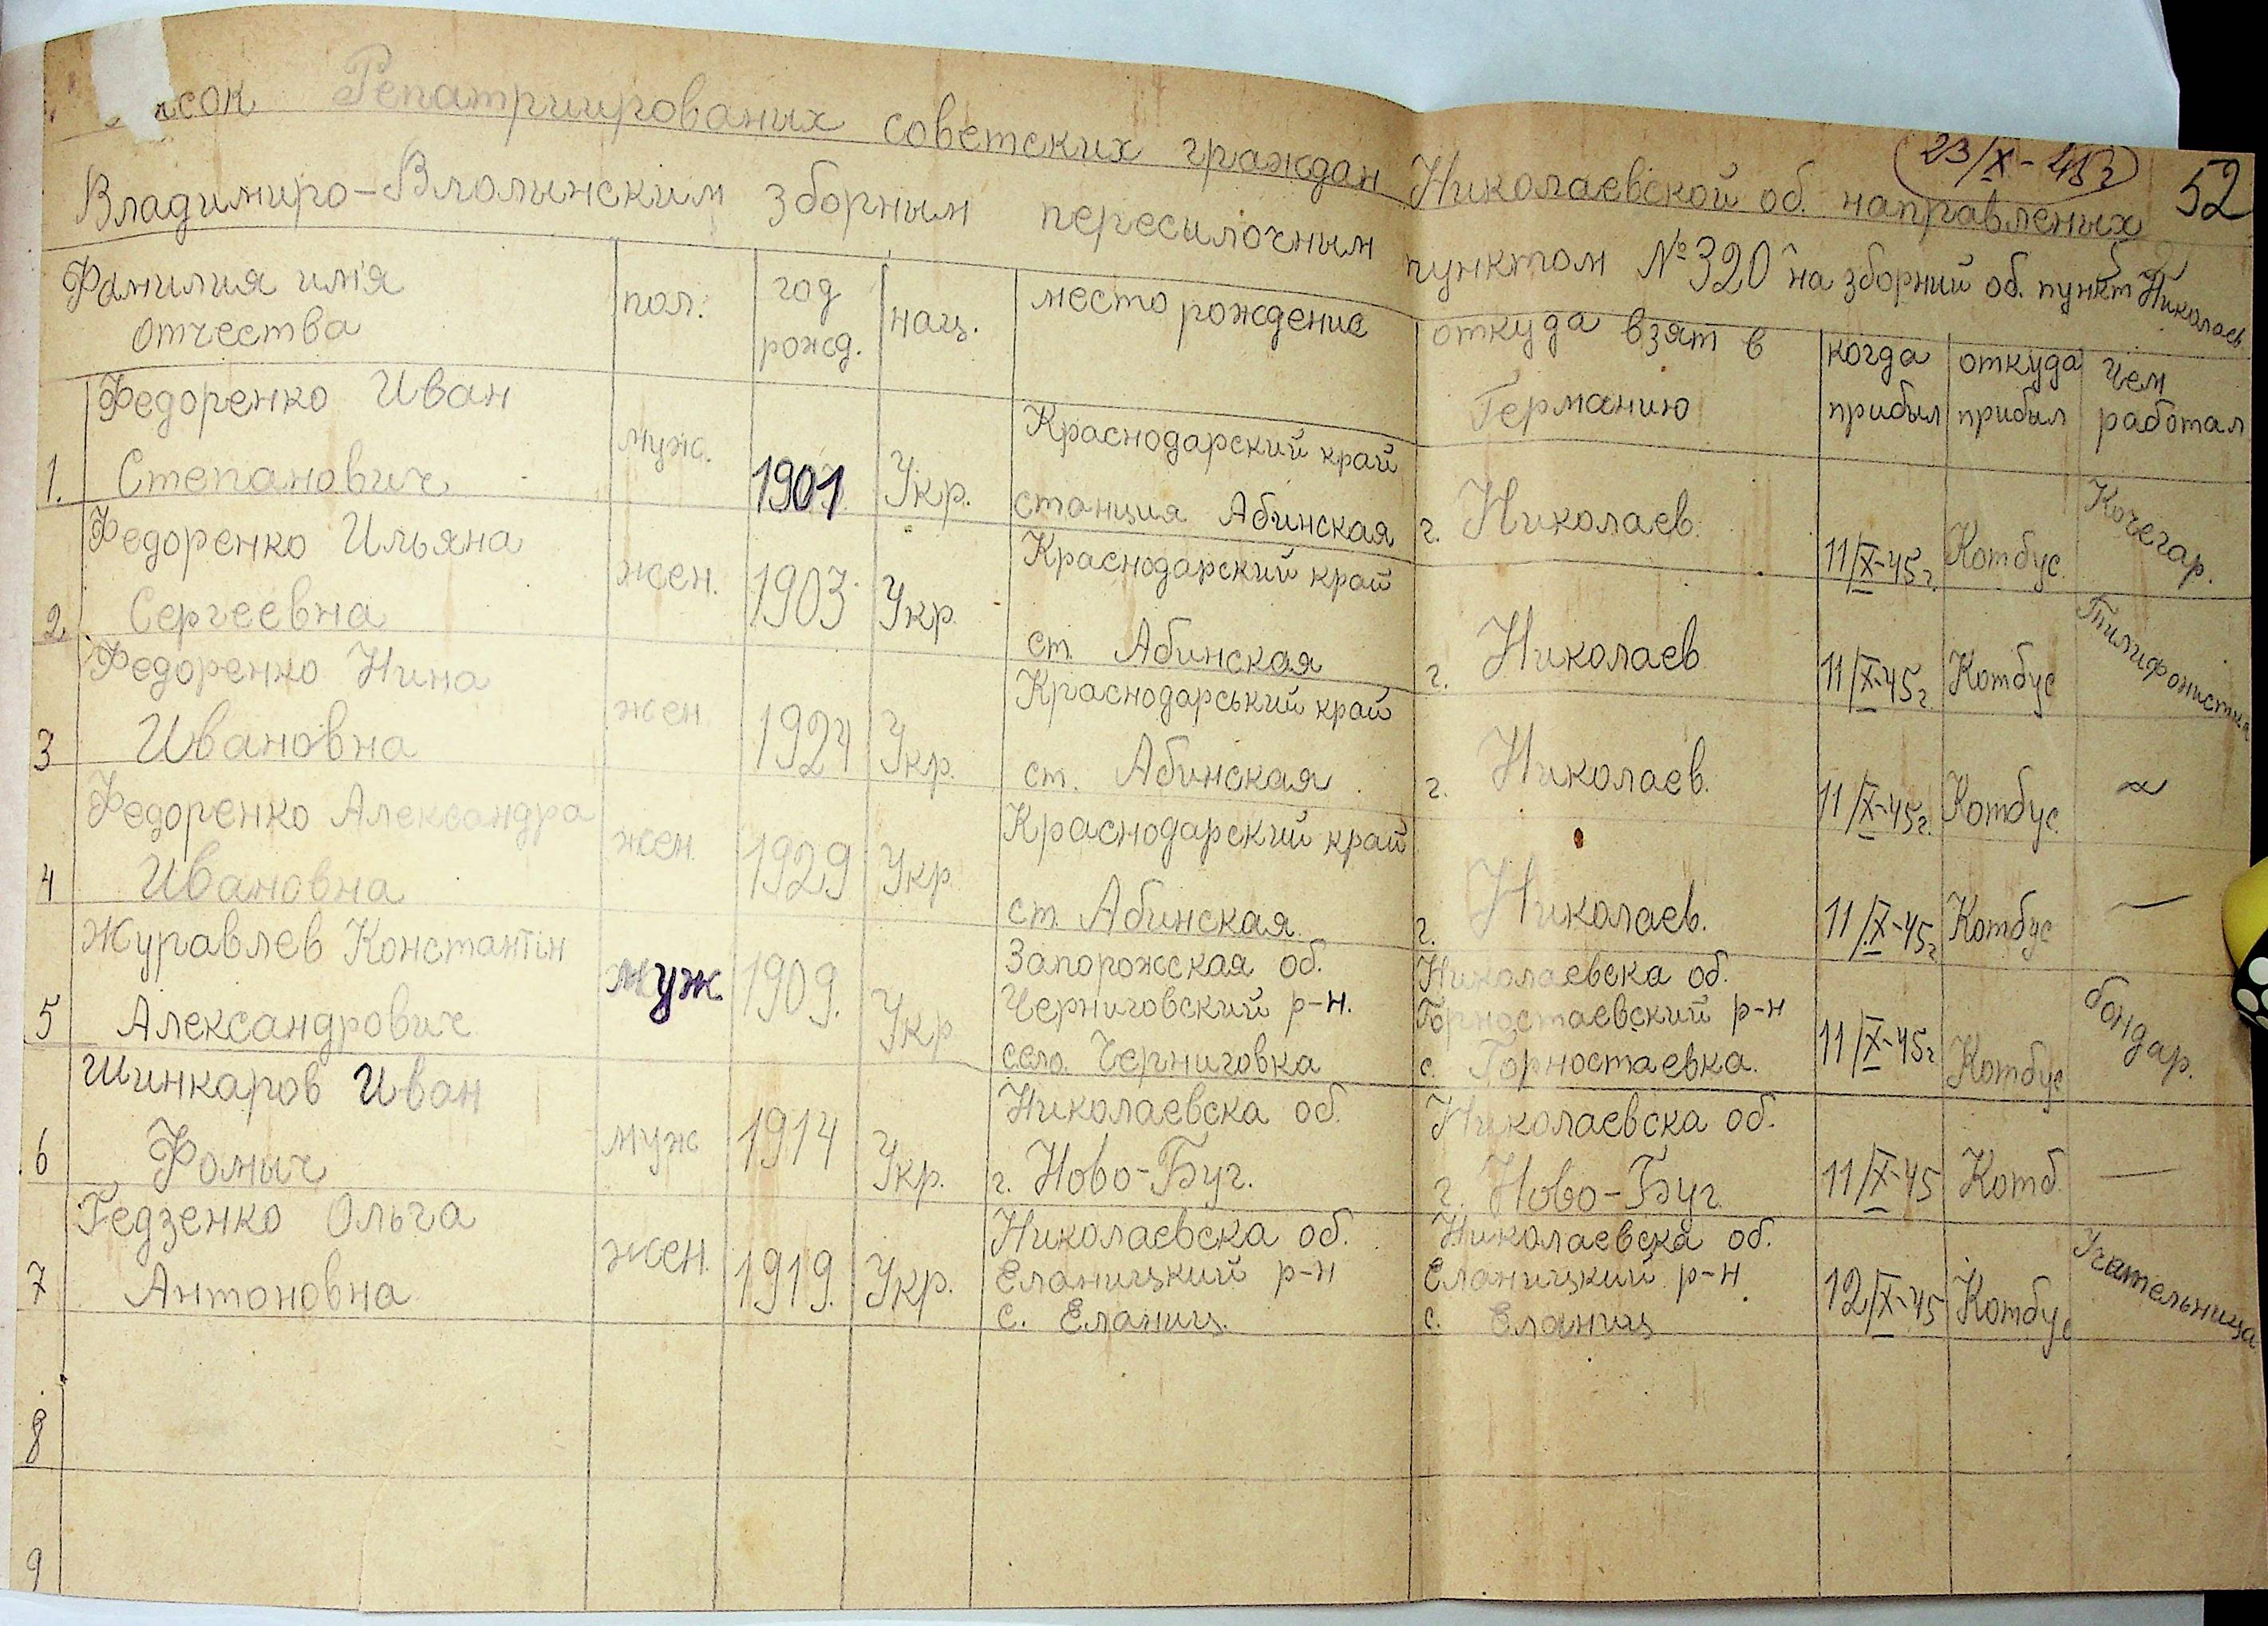 сок Репатриированых советских граждан Николаевской об. направленых
23/X-45г
52
Владимиро-Влолынским зборным пересилочным пунктом №320 на зборний об. пункт Николаев
Фамилия им'я отчества | пол. | год рожд. | нац. | место рождение | откуда взят в Германию | когда прибыл | откуда прибыл | чем работал
1. Федоренко Иван Степанович | муж. | 1901 | Укр. | Краснодарский край станция Абинская | г. Николаев. | 11/X-45г. | Котбус | Кочегар.
2 Федоренко Ильяна Сергеевна | жен. | 1903. | Укр. | Краснодарский край ст. Абинская | г. Николаев | 11/X-45г. | Котбус | Тилифонистка
3 Федоренко Нина Ивановна | жен | 1924 | Укр. | Краснодарський край ст. Абинская | г. Николаев. | 11/X-45г. | Котбус | ~
4 Федоренко Александра Ивановна | жен. | 1929 | Укр | Краснодарский край ст. Абинская | г. Николаев. | 11/X-45г | Котбус | —
5 Журавлев Константін Александрович | муж | 1909. | Укр | Запорожская об. Черниговский р-н. село. Черниговка | Николаевска об. Горностаевский р-н с. Горностаевка. | 11/X-45г | Котбус | бондар.
6 Шинкаров Иван Фомыч | муж | 1914 | Укр. | Николаевска об. г. Ново-Буг. | Николаевска об. г. Ново-Буг | 11/X-45 | Котб. | —
7 Гедзенко Ольга Антоновна | жен. | 1919. | Укр. | Николаевска об. Еланицкий р-н с. Еланиц. | Николаевска об. Еланицкий р-н. с. Еланиц | 12/X-45 | Котбус | Учительница
8
9